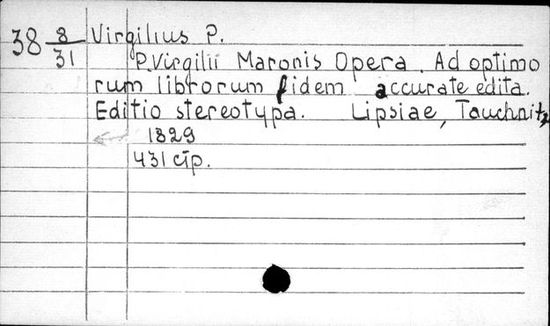 38 8/31 Virgilius P.
P. Virgilii Maronis Opera. Ad optimo
rum librorum fidem accurate edita.
Editio stereotypa. Lipsiae, Tauchnitz,
1829
431 стр.